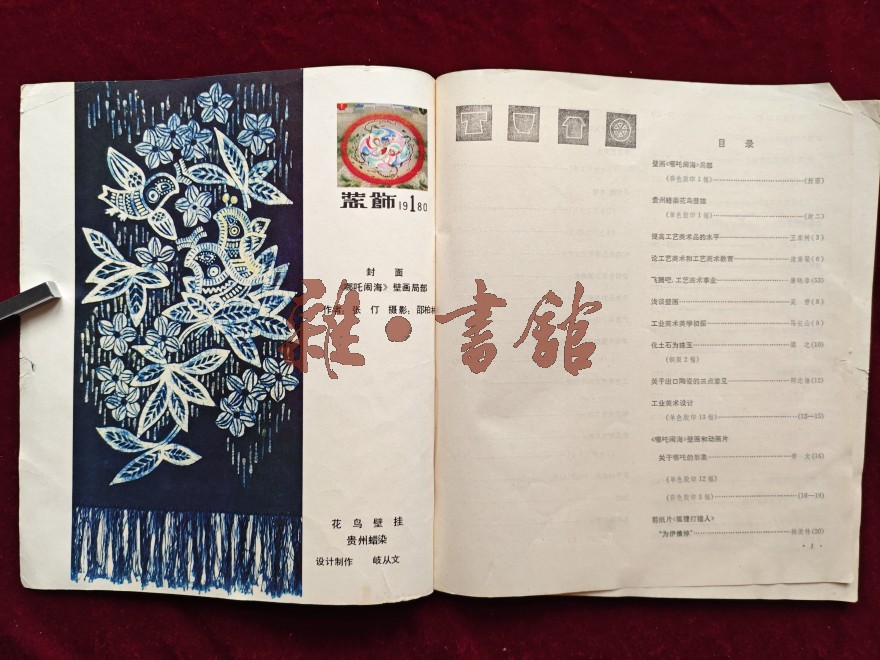 装飾 1980
封 面
《哪吒闹海》壁画局部
作者：张 仃 摄影：邵柏林
雜·書館
花鸟壁挂
贵州蜡染
设计制作 岐从文
目 录
壁画《哪吒闹海》局部
（彩色胶印1幅）(封面)
贵州蜡染花鸟壁挂
（单色胶印1幅）(封二)
提高工艺美术品的水平 (3)
论工艺美术和工艺美术教育 (6)
飞腾吧，工艺美术事业 (53)
浅谈壁画 (8)
工业美术美学初探 (9)
化土石为珠玉 (10)
（铜版2幅）
关于出口陶瓷的三点意见 (12)
工业美术设计
（单色胶印13幅）(13—15)
《哪吒闹海》壁画和动画片
关于哪吒的形象 (16)
（单色胶印12幅）
（彩色胶印5幅）(16—19)
剪纸片《狐狸打猎人》
(20)
·1·